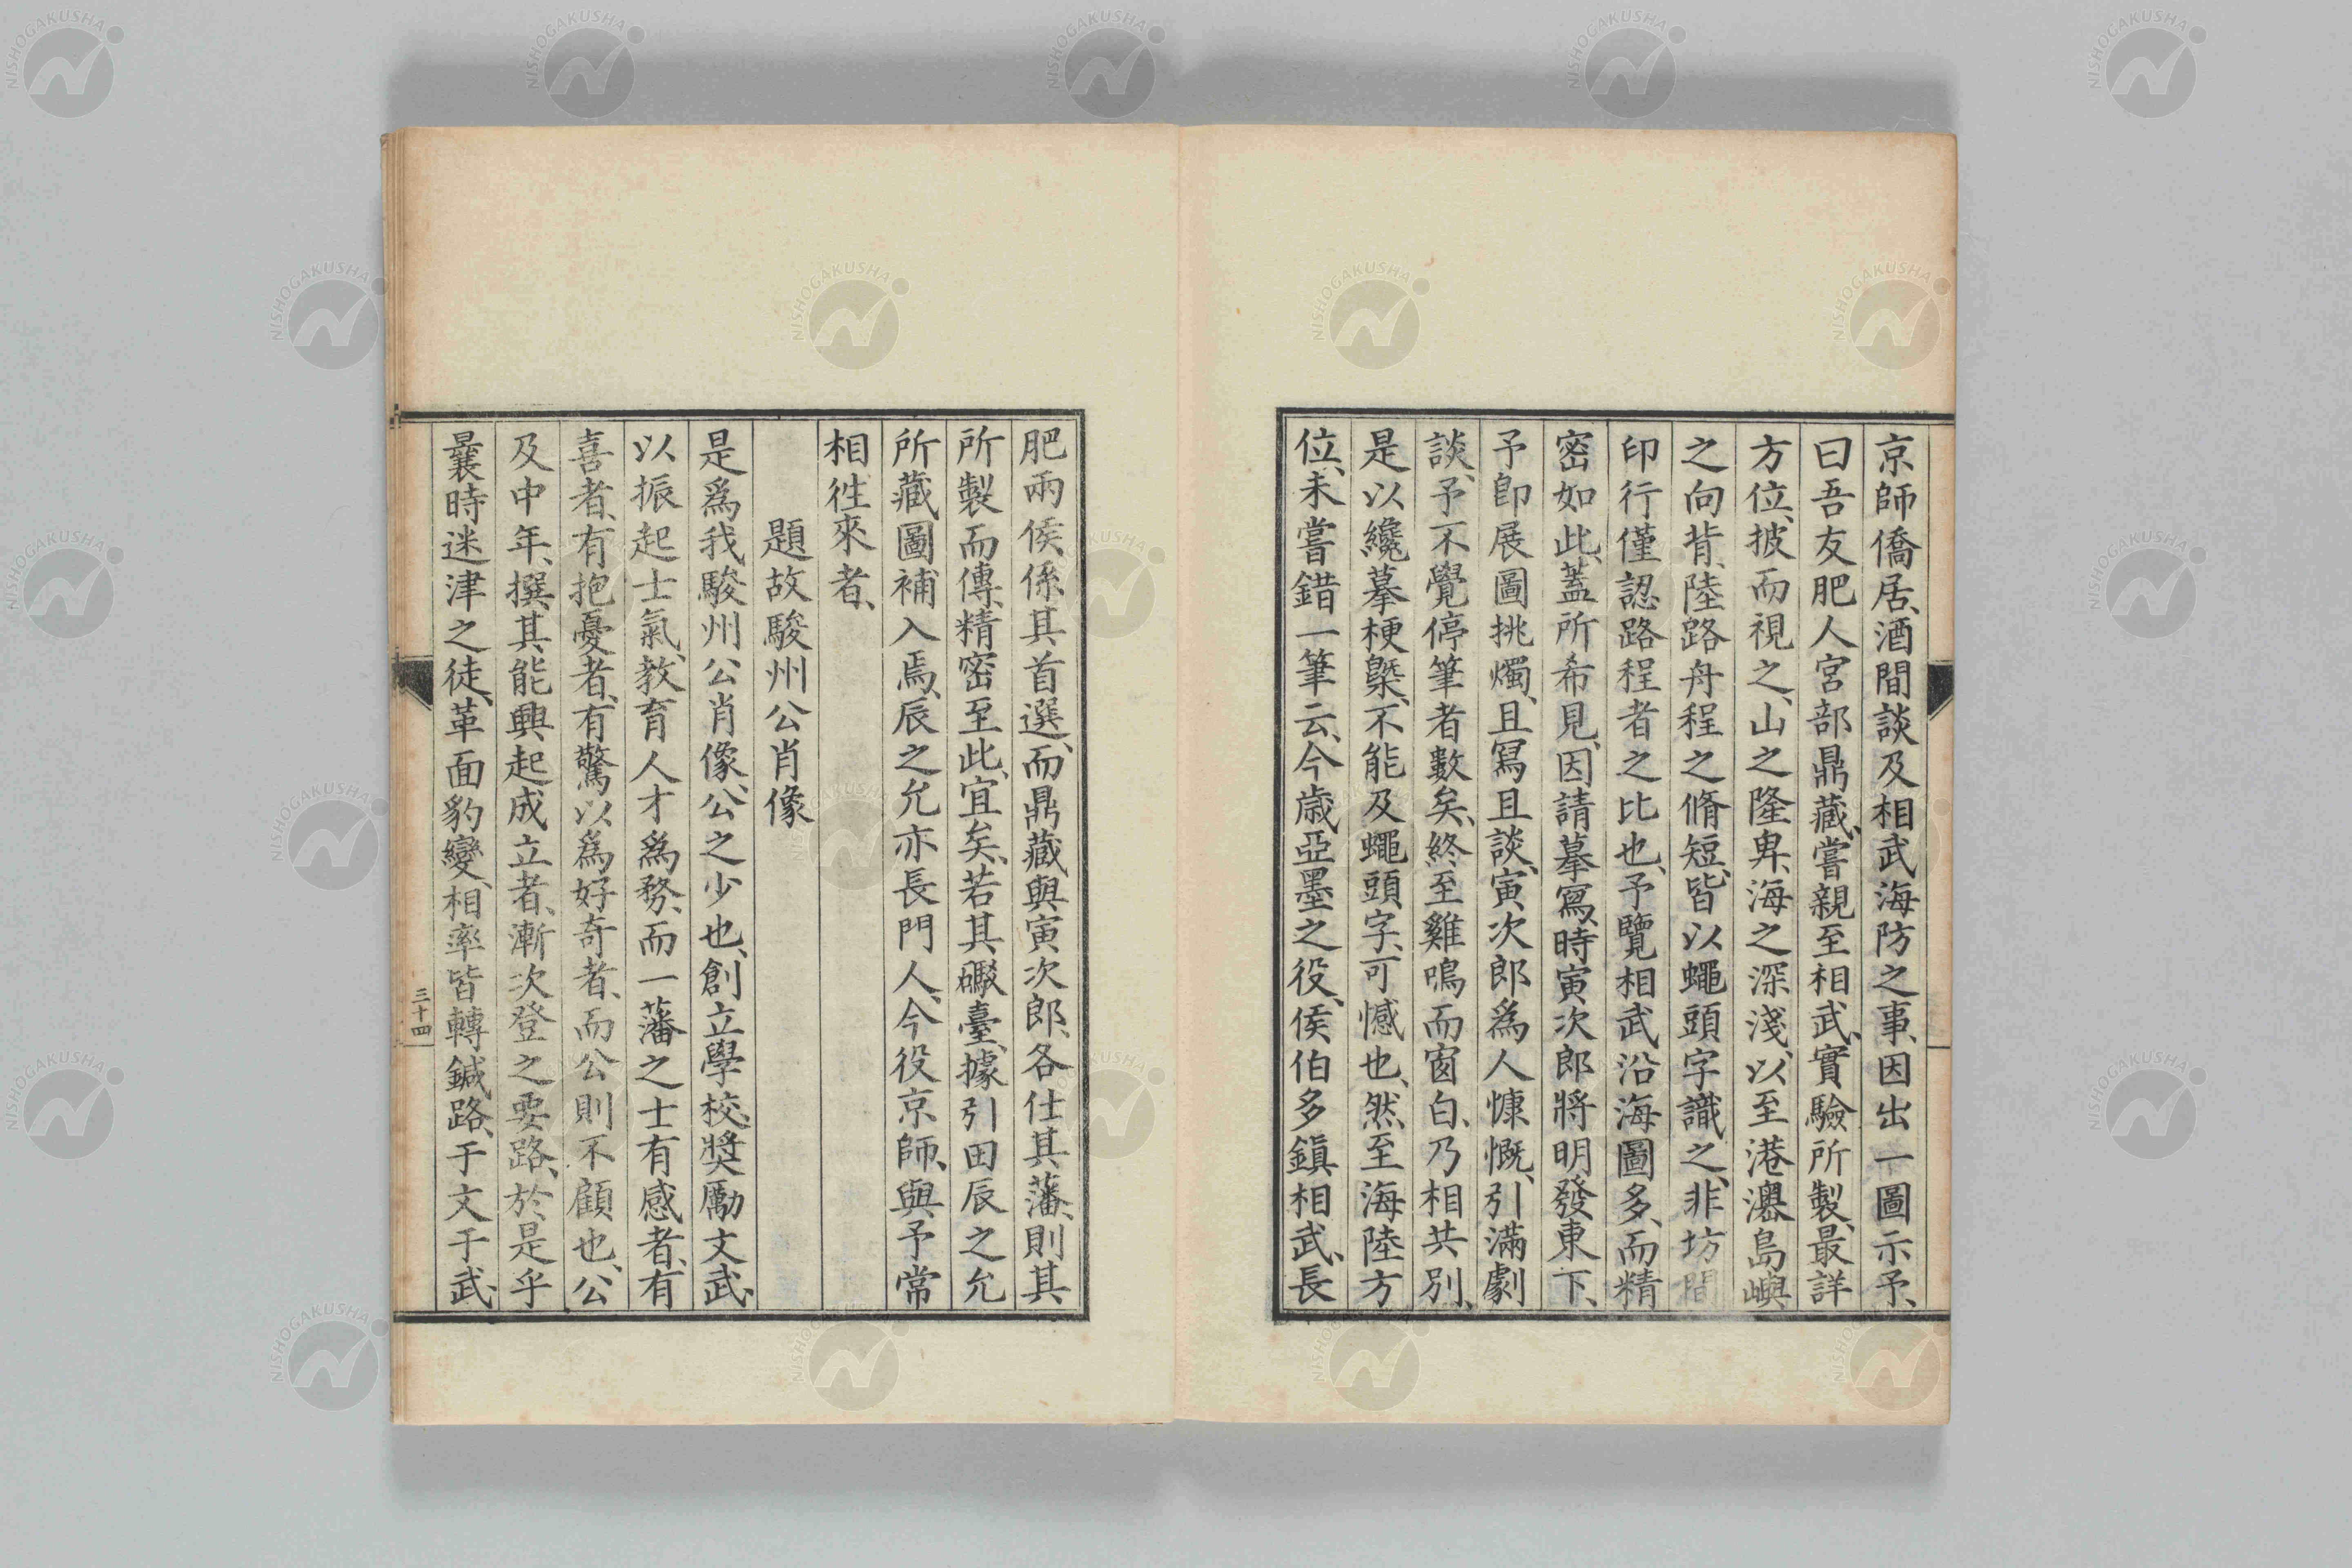 京師僑居、酒間談及相武海防之事、因出一圖示予、
曰吾友肥人宮部鼎藏、嘗親至相武、實驗所製、最詳
方位、披而視之、山之隆卑、海之深淺、以至港澳島嶼
之向背、陸路舟程之脩短、皆以蠅頭字識之、非坊間
印行僅認路程者之比也、予覽相武沿海圖多、而精
密如此、蓋所希見、因請摹寫、時寅次郎將明發東下、
予卽展圖挑燭、且寫且談、寅次郎爲人慷慨、引滿劇
談、予不覺停筆者數矣、終至雞鳴而窗白、乃相共別、
是以纔摹梗槩、不能及蠅頭字、可憾也、然至海陸方
位、未嘗錯一筆云、今歲亞墨之役、侯伯多鎭相武、長
肥兩侯係其首選、而鼎藏與寅次郎、各仕其藩、則其
所製而傳、精密至此、宜矣、若其礮臺、據引田辰之允
所藏圖補入焉、辰之允亦長門人、今役京師、與予常
相徃來者、
題故駿州公肖像
是爲我駿州公肖像、公之少也、創立學校、奬勵文武、
以振起士氣、教育人才爲務、而一藩之士有感者、有
喜者、有抱憂者、有驚以爲好奇者、而公則不顧也、公
及中年、撰其能興起成立者、漸次登之要路、於是乎
曩時迷津之徒、革面豹變、相率皆轉鍼路、于文于武、
三十四
NISHOGAKUSHA